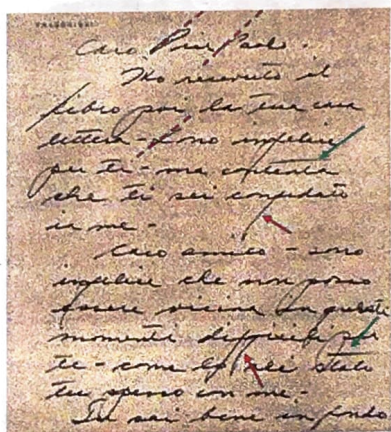 Caro Pier Paolo.
Ho ricevuto il
libro poi la tua cara
lettera - sono infelice
per te - ma contenta
che ti sei confidato
in me -
Caro amico - sono
infelice che non posso
essere vicina in questi
momenti difficili per
te - come lo sei stato
tu spesso con me -
Tu sai bene in fondo